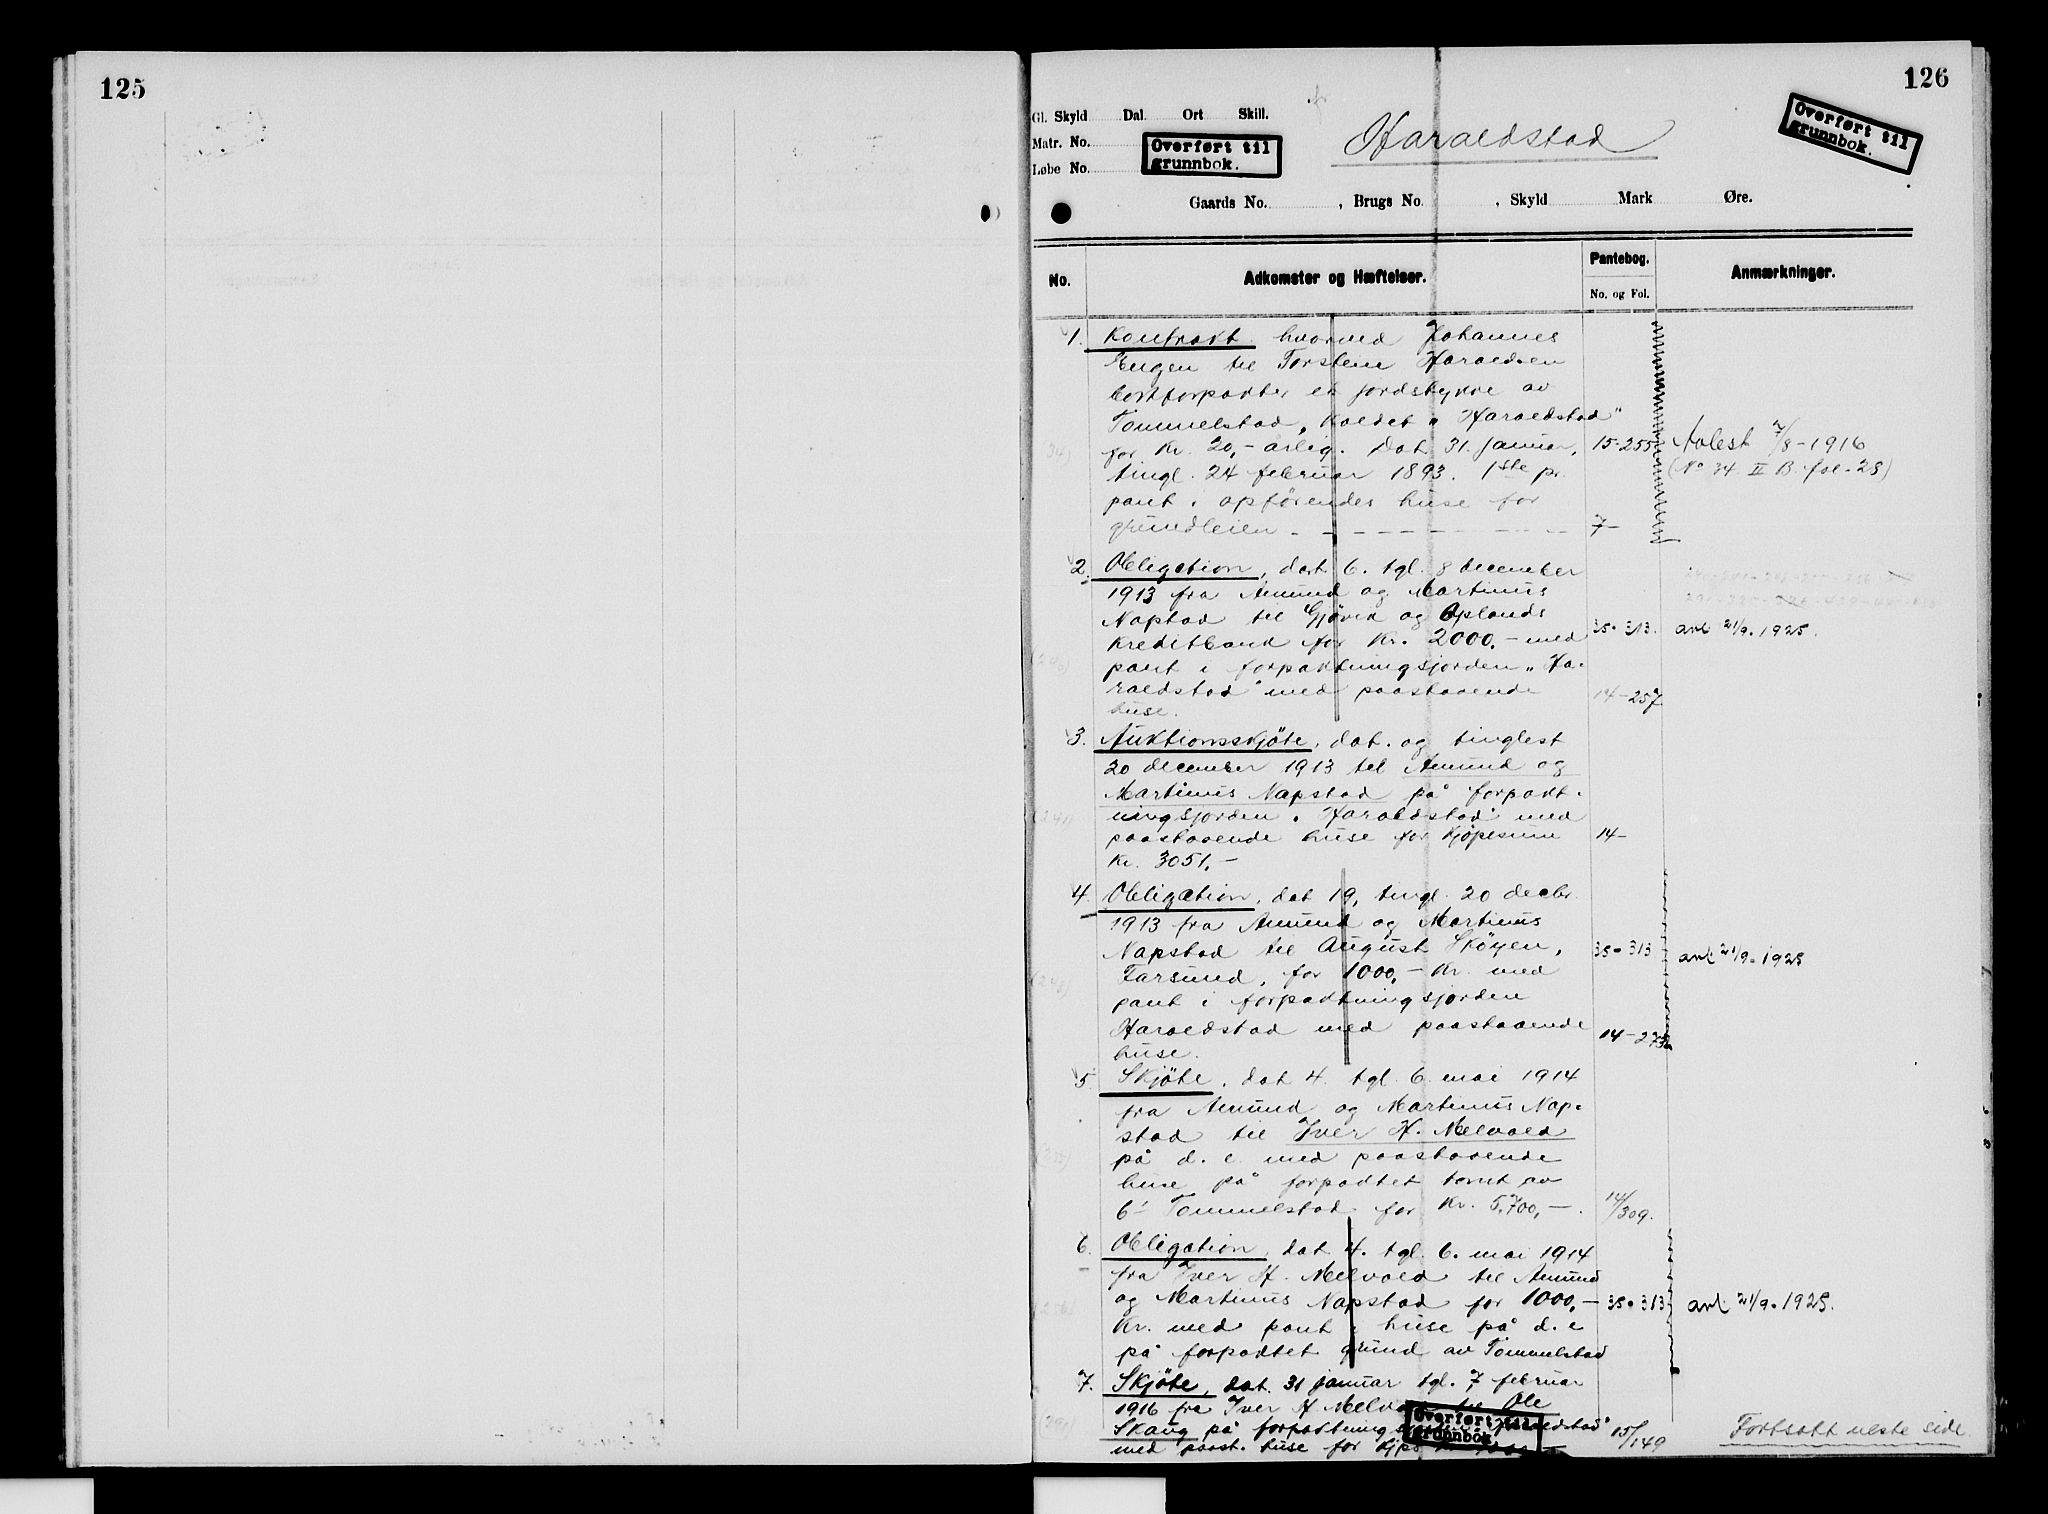 125
126
Gl. Skyld Dal. Ort Skill.
Matr. No.
Løbe No.
Overført til
grunnbok.
Haraldstad
Overført til
grunnbok.
Gaards No. , Brugs No. , Skyld Mark Øre.
No. Adkomster og Hæftelser. Pantebog. Anmærkninger.
No. og Fol.
1. Kontrakt hvorved Johannes
Engen til Torstein Haraldsen
bortforpakter et jordstykke av
Tommelstad, kaldet "Haraldstad"
for Kr. 20,- årlig. Dat. 31. januar, 15-255 Avlest 7/8-1916
tingl. 24 februar 1893. 1ste pr. (No 34 II B. fol. 28)
pant i opførendes huse for
grundleien - - - - - - - - - 7-
2. Obligation, dat 6. tgl. 8 december
1913 fra Amund og Martinus
Napstad til Gjøvik og Oplands
Kreditbank for Kr. 2000.- med 35-313. avl 21/9-1925.
pant i forpaktningsjorden "Ha-
raldstad" med paastaaende 14-257
huse.
3. Auktionsskjöte, dat. og tinglest
20 december 1913 til Amund og
Martinus Napstad på forpakt-
ningsjorden "Haraldstad" med
paastaaende huse for kjøpesum 14-
Kr. 3051.-
4. Obligation, dat 19, tingl. 20 decbr.
1913 fra Amund og Martinus
Napstad til August Sköyen, 35-313 avl 21/9-1925
Farsund, for 1000,- Kr. med
pant i forpaktningsjorden
Haraldstad med paastaaende 14-273
huse.
5. Skjöte, dat 4. tgl. 6. mai 1914
fra Amund og Martinus Nap-
stad til Iver H. Melvold
på d. e. med paastaaende
huse på forpaktet tomt av
Tommelstad for Kr. 5,700,-. 14/309.
6. Obligation, dat 4. tgl. 6. mai 1914
fra Iver H. Melvold til Amund
og Martinus Napstad for 1000,- 35-313 avl 21/9-1925.
Kr. med pant i huse på d. e
på forpaktet grund av Tommelstad
7. Skjöte, dat. 31 januar tgl. 7 februar
1916 fra Iver H Melvold til Ole
Skaug på forpaktning Haraldstad" 15/149 Fortsatt neste side
Overført til
grunnbok.
med paast. huse for kjps